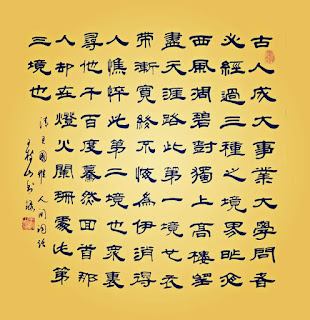 古人成大事業大學問者
必經過三種之境界昨夜
西風凋碧樹獨上高樓望
盡天涯路此第一境也衣
帶漸寬終不悔為伊消得
人憔悴此第二境也眾裏
尋他千百度驀然回首那
人却在燈火闌珊處此第
三境也
清王國維人間詞話